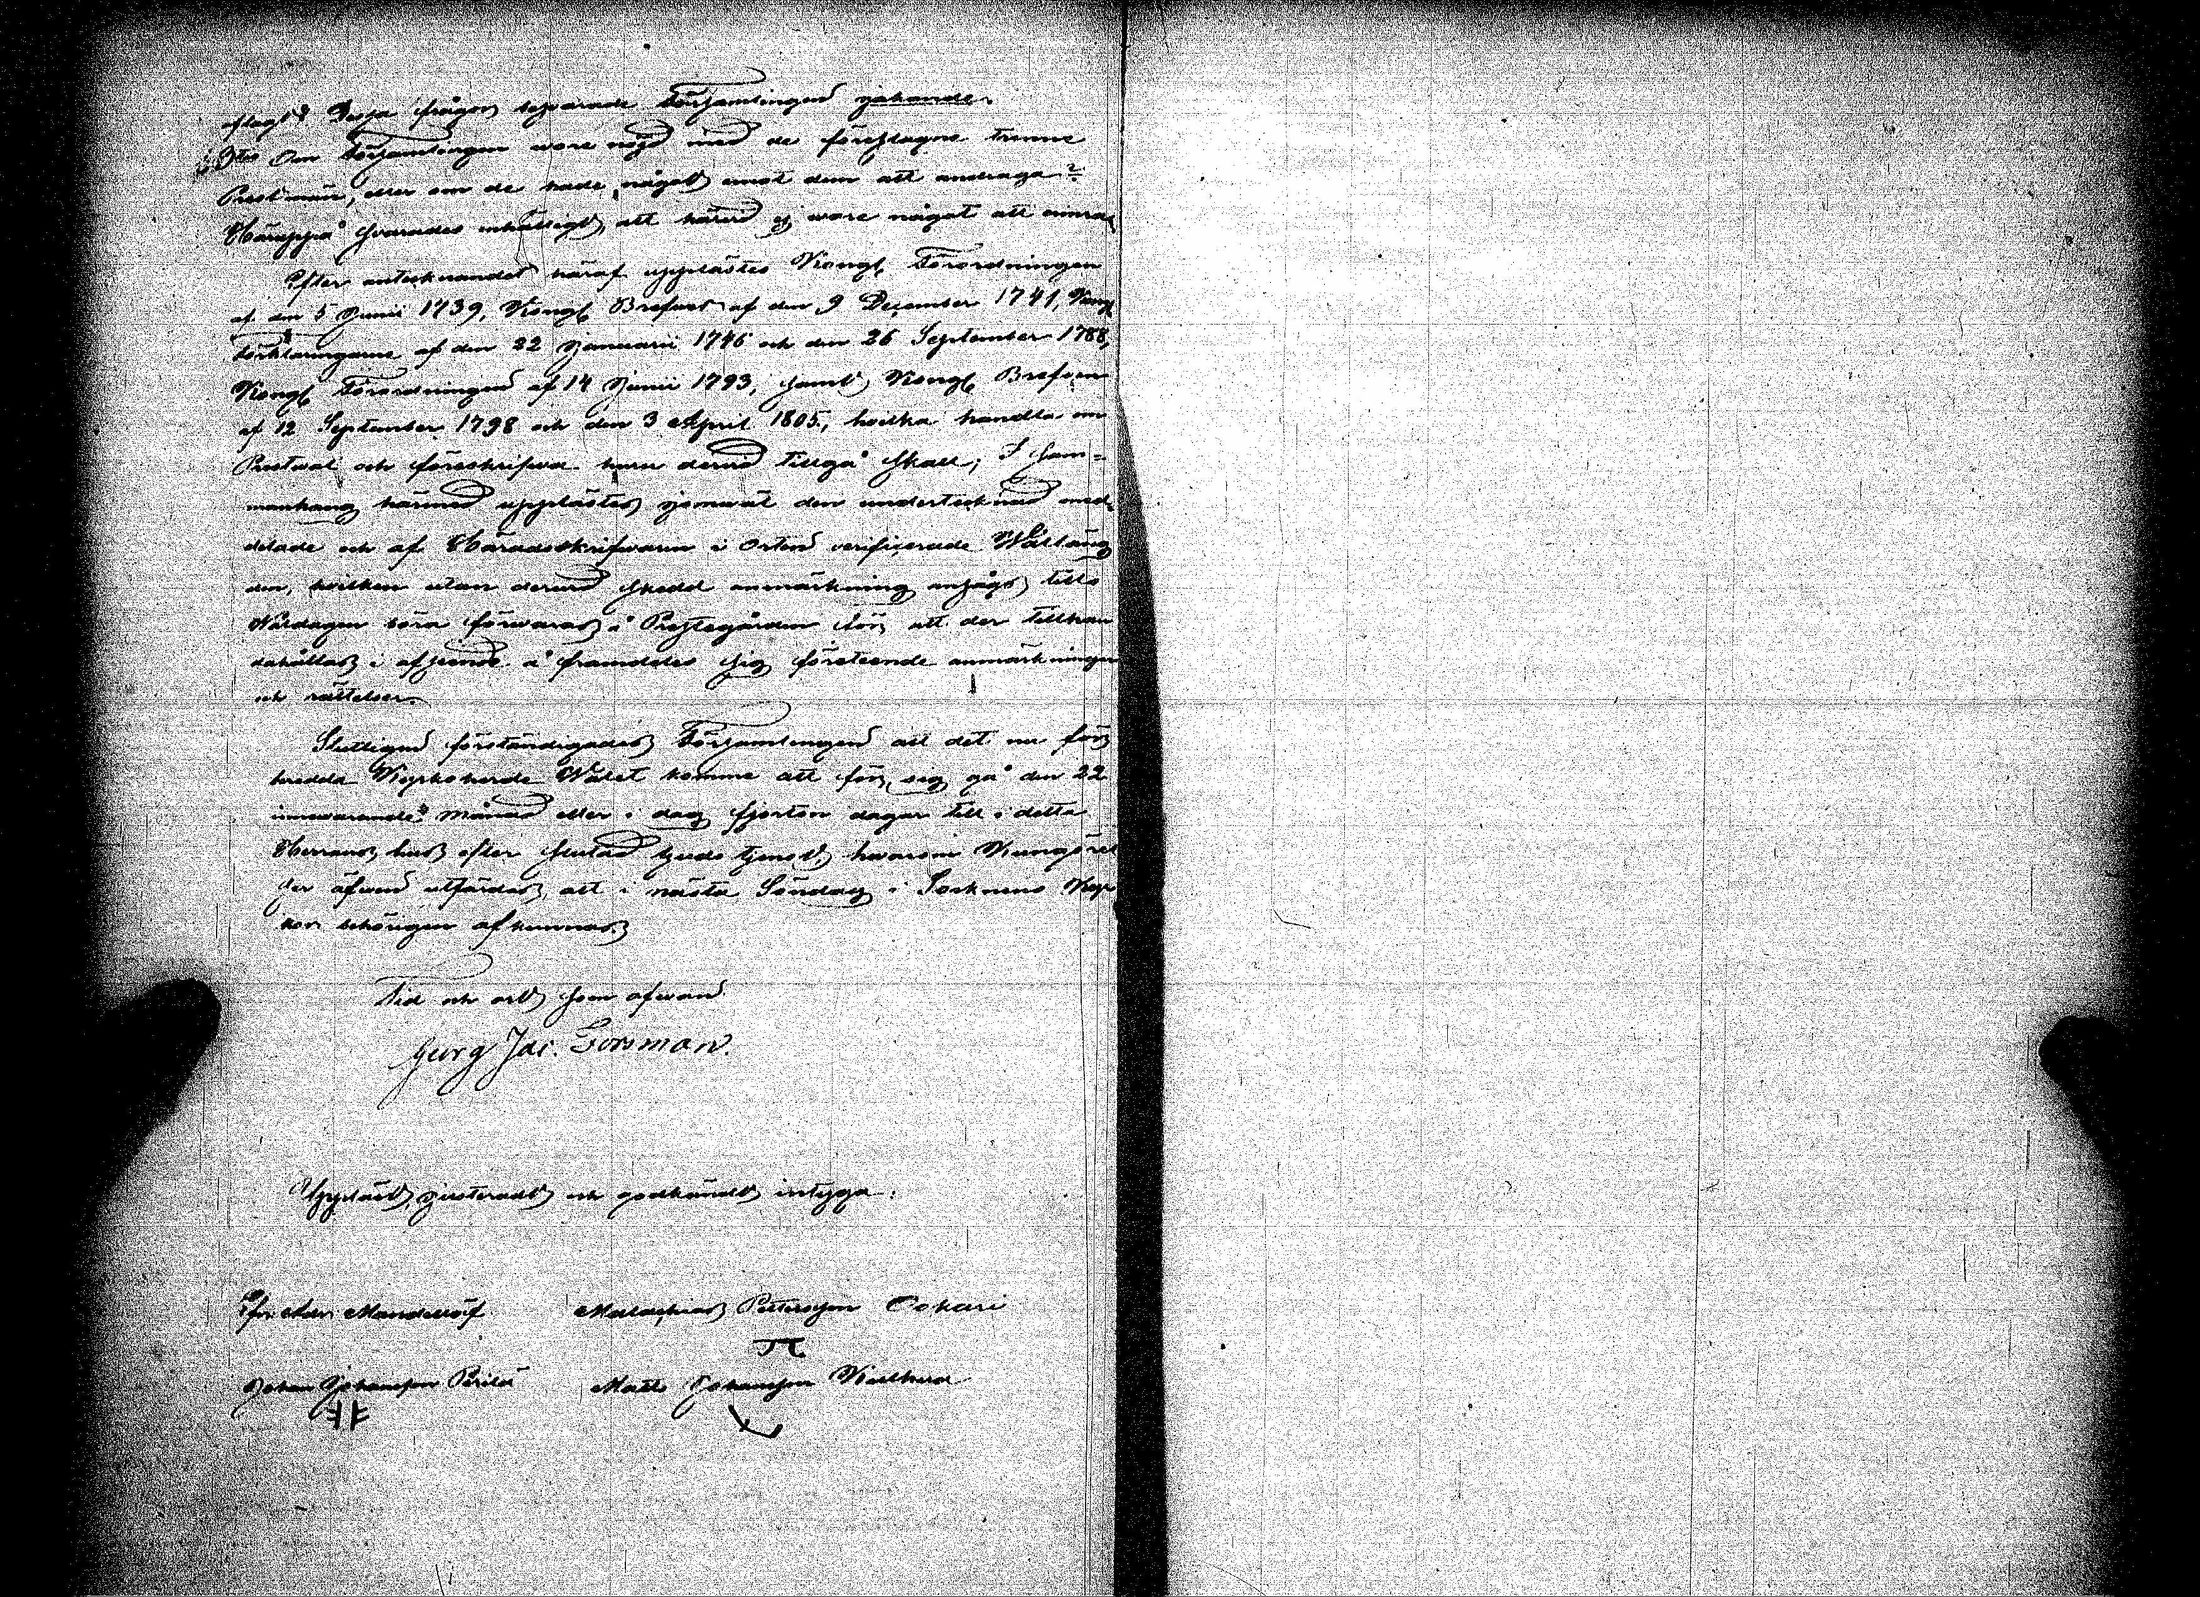 Dessa frågor besvarade Församlingen jakande.
3tio Om Församlingen wore nöjd med de föreslagne trenne
Prestmän, eller om de hade något emot dem att andraga?
Häruppå svarades enhälligt, att härvid ej wore något att
Efter antecknandet häraf upplästes Kongl. Förordningen
af den 5 Junii 1739, Kongl. Brefvet af den 9 December 1741, Kongl
Förklaringarne af den 22 Januarii 1746 och den 26 September 1788,
Kongl. Förordningen af 14 Junii 1793, samt Kongl. Brefven
af 12 September 1798 och den 3 April 1805, hvilka handla om
Prestwal och föreskrifva huru dervid tillgå skall; I sam=
manhang härmed upplästes jemwäl den undertecknad med=
delade och af Häradsskrifwaren i Orten verificerade Walläng
den, hvilken utan dervid skedd anmärkning ansågs tills
Waldagen böra förwaras i Prestegården för att der tillhan
dahållas i afseende å framdeles sig företeende anmärkningar
och rättelser.
Slutligen förständigades Församlingen att det nu före
tredda Kyrkoherde Walet komme att för sig gå den 22
innewarande Månad eller i dag fjorton dagar till i detta
Herrans hus efter slutad Gudstjenst, hwarom Kungörel
ser äfwen utfärdas, att i nästa Söndag i Socknens Kyr
kor behörigen afkunnas.
Tid och ort som ofwan
Georg Jac. Forsman.
Uppläst, justeradt och godkändt intyga:
Mandellöf Malachias Pettersson Ookari
Johan Johansson Perilä Matts Johansson